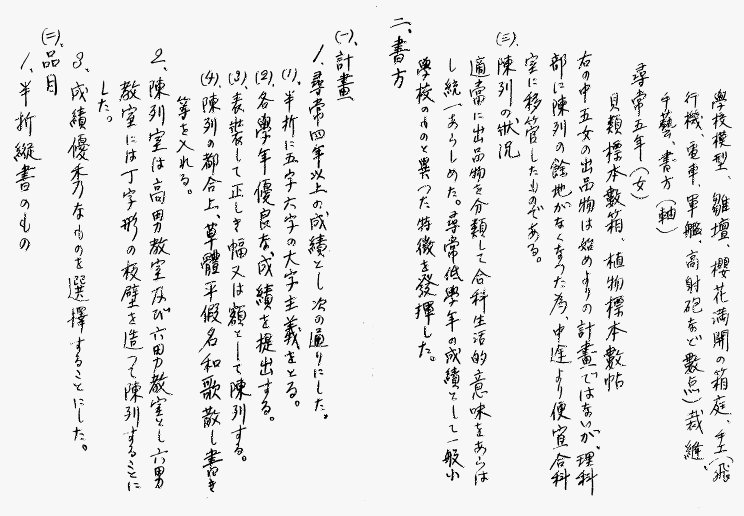 學校模型、雛壇、櫻花滿開の箱庭、手工(飛
行機、電車、軍艦、高射砲など數点)裁縫、
手藝、書方(軸)
尋常五年(女)
貝類標本數箱、植物標本數帖
右の中五女の出品物は始めよりの計畫ではないが、理科
部に陳列の餘地がなくなつた為、中途より便宜合科
室に移管したものである。
(三)陳列の狀況
適當に出品物を分類して合科生活的意味をあらは
し統一あらしめた。尋常低學年の成績として一般小
學校のものと異つた特徴を發揮した。
二、書方
(一)、計畫
1、尋常四年以上の成績とし次の通りにした。
(1)、半折に五字六字の大字主義をとる。
(2)、各學年優良な成績を提出する。
(3)、表裝して正しき幅又は額として陳列する。
(4)、陳列の都合上、草體平假名和歌散し書き
等を入れる。
2、陳列室は高男教室及び六男教室とし六男
教室には丁字形の板壁を造つて陳列することに
した。
3、成績優秀なものを選擇することにした。
(二)、品目
1、半折縱書のもの